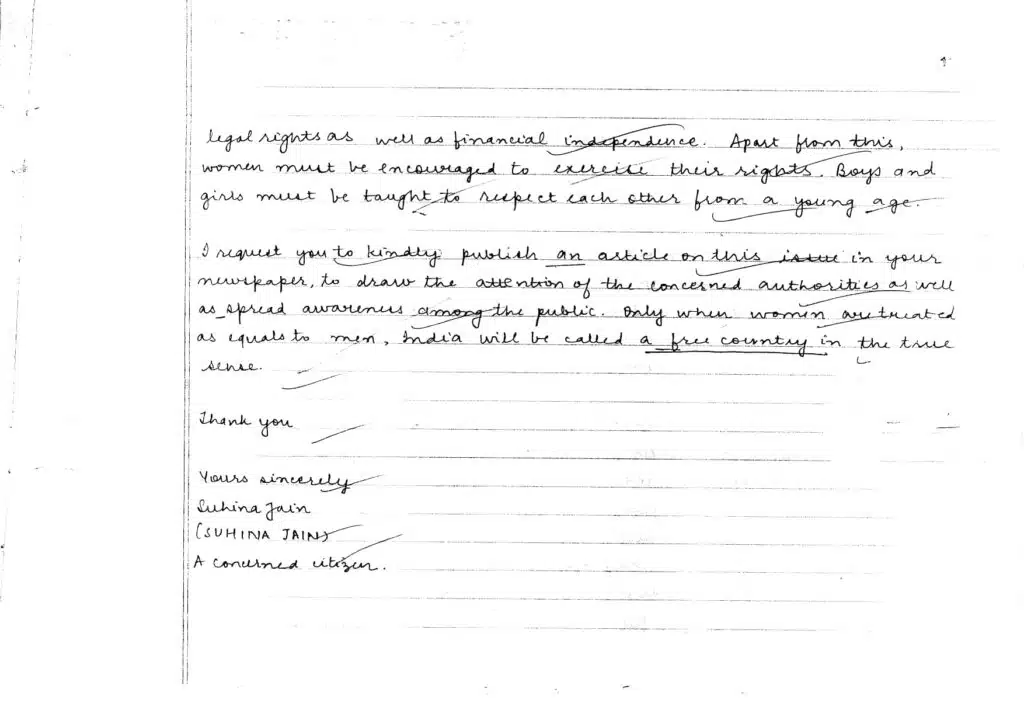 legal rights as well as financial independence. Apart from this,
women must be encouraged to exercise their rights. Boys and
girls must be taught to respect each other from a young age.
I request you to kindly publish an article on this issue in your
newspaper, to draw the attention of the concerned authorities as well
as spread awareness among the public. Only when women are treated
as equals to men, India will be called a free country in the true
sense.
Thank you
Yours sincerely
Suhina Jain
(SUHINA JAIN)
A concerned citizen.